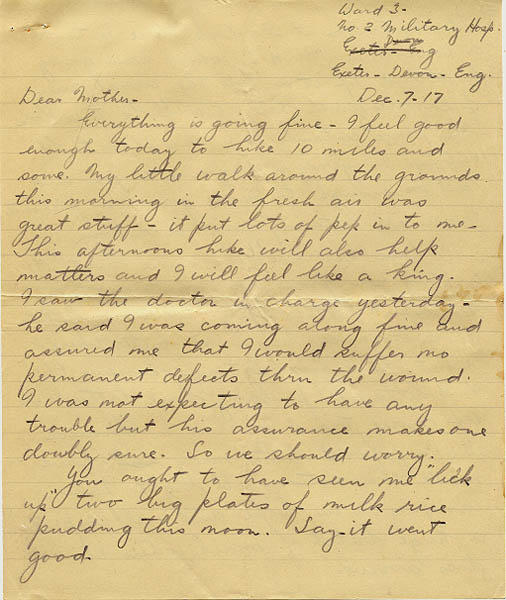 Ward 3-
No. 3 Military Hosp.
Devon
Exeter - Eng
Exeter - Devon - Eng.
Dec. 7-17
Dear Mother-
Everything is going fine - I feel good
enough today to hike 10 miles and
some. My little walk around the grounds
this morning in the fresh air was
great stuff - it put lots of pep in to me-
This afternoons hike will also help
matters and I will feel like a king.
I saw the doctor in charge yesterday-
he said I was coming along fine and
assured me that I would suffer no
permanent defects thru the wound.
I was not expecting to have any
trouble but his assurance makes one
doubly sure. So we should worry.
You ought to have seen me "lick
up" two big plates of milk rice
pudding this noon. Say-it went
good.